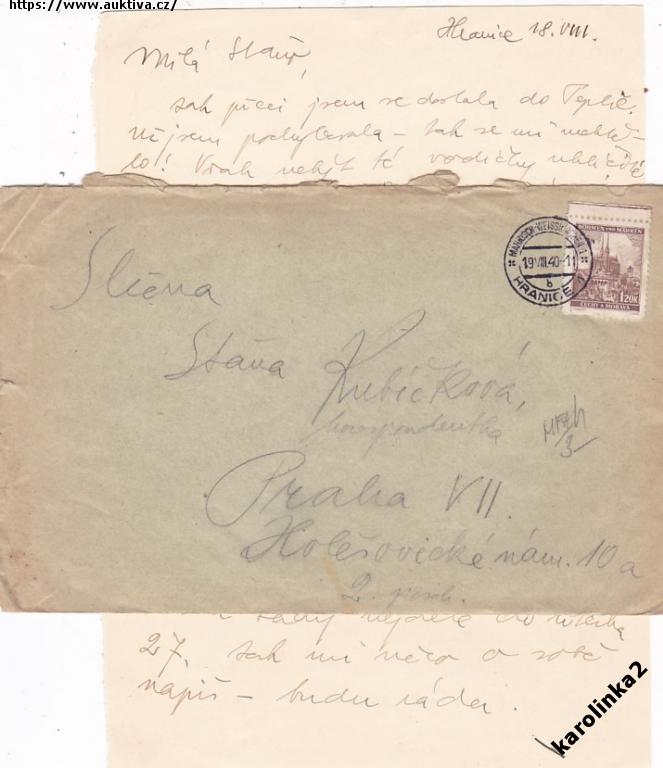 https://www.auktiva.cz/
Hranice 18.VIII.
Milá Staňo,
tak přeci jsem se dostala do Teplic.
Ni jsem pochybovala – tak se mi nechtě-
lo! Však nebýt té vodičky uhličité
MÄHRISCH-WEISSKIRCHEN 1
19.VIII.40-11
b
HRANICE 1
BÖHMEN UND MÄHREN
1.20K
ČECHY A MORAVA
Slečna
Staňa Kubíčková,
korespondentka
3-
Praha VII.
Holešovické nám. 10a
2. posch.
27. tak mi něco o sobě
napiš – budu ráda.
karolinka2